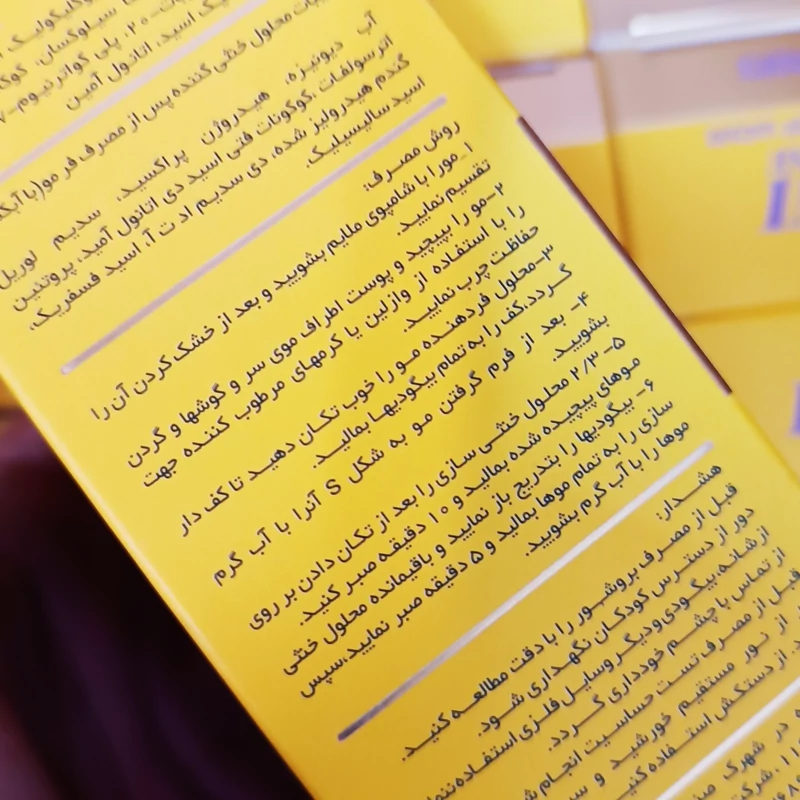 محلول خنثی کننده پس از مصرف فر مو(با آبک
آب دیونیزه، هیدروژن پراکسید، سدیم لوریل
اتر سولفات، کوکونات فتی اسید دی اتانول آمید، پروتئین
گندم هیدرولیز شده، دی سدیم ادت آ، اسید فسفریک،
اسید سالیسیلیک.
روش مصرف:
۱_مو را با شامپوی ملایم بشویید و بعد از خشک کردن آن را
تقسیم نمایید.
۲-مو را بپیچید و پوست اطراف موی سر و گوشها و گردن
را با استفاده از وازلین یا کرمهای مرطوب کننده جهت
حفاظت چرب نمایید.
۳-محلول فردهنده مو را خوب تکان دهید تا کف دار
گردد،کف را به تمام بیگودیها بمالید.
۴- بعد از فرم گرفتن مو به شکل S آنرا با آب گرم
بشویید.
۵- ۲/۳ محلول خنثی سازی را بعد از تکان دادن بر روی
موهای پیچیده شده بمالید و ۱۰ دقیقه صبر کنید.
۶- بیگودیها را بتدریج باز نمایید و باقیمانده محلول خنثی
سازی را به تمام موها بمالید و ۵ دقیقه صبر نمایید،سپس
موها را با آب گرم بشویید.
هشدار:
قبل از مصرف بروشور را با دقت مطالعه کنید.
دور از دسترس کودکان نگهداری شود.
از شانه،بیگودی ودیگر وسایل فلزی استفاده
از تماس با چشم خودداری گردد.
قبل از مصرف تست حساسیت انجام
از نور مستقیم خورشید و
از دستکش استفاده
در شهرک